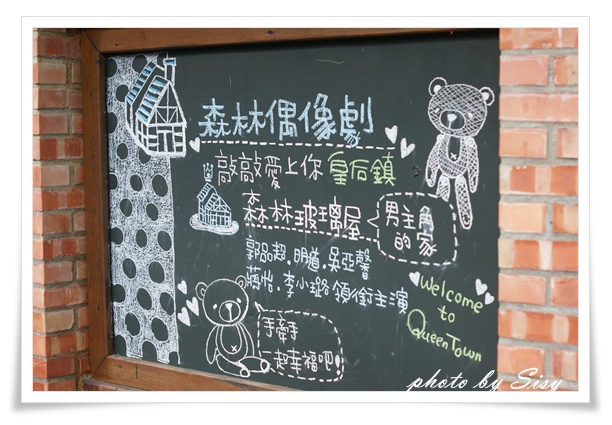 森林偶像劇
敲敲愛上你 皇后鎮
森林玻璃屋
男主角
的家
郭品超.明道.吳亞馨
蔣怡.李小璐 領銜主演
Welcome
to
QueenTown
手牽手
一起幸福吧!
photo by Sisy